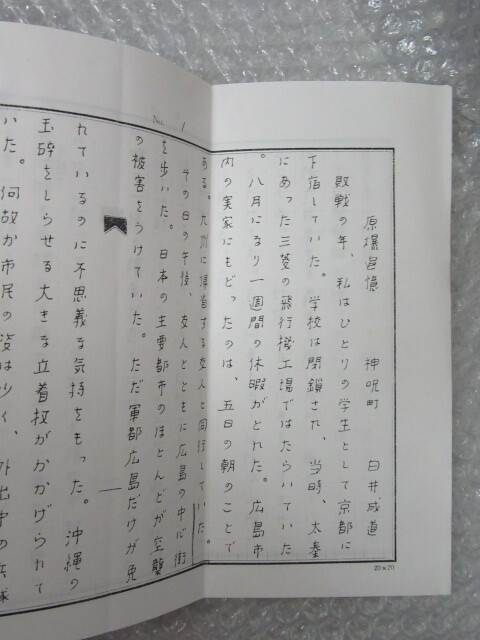 原爆追憶　神呪町　臼井成道
敗戦の年、私はひとりの学生として京都に
下宿していた。学校は閉鎖され、当時、太秦
にあった三菱の飛行機工場ではたらいていた
。八月になり一週間の休暇がとれた。広島市
内の実家にもどったのは、五日の朝のことで
ある。九州に帰省する友人と同行していた。
その日の午後、友人とともに広島の中心街
を歩いた。日本の主要都市のほとんどが空襲
の被害をうけていた。ただ軍都広島だけが免
れているのに不思議な気持をもった。沖縄の
玉砕をしらせる大きな立看板がかかげられて
いた。何故か市民の姿は少く、外出中の兵隊
No. 1
20×20